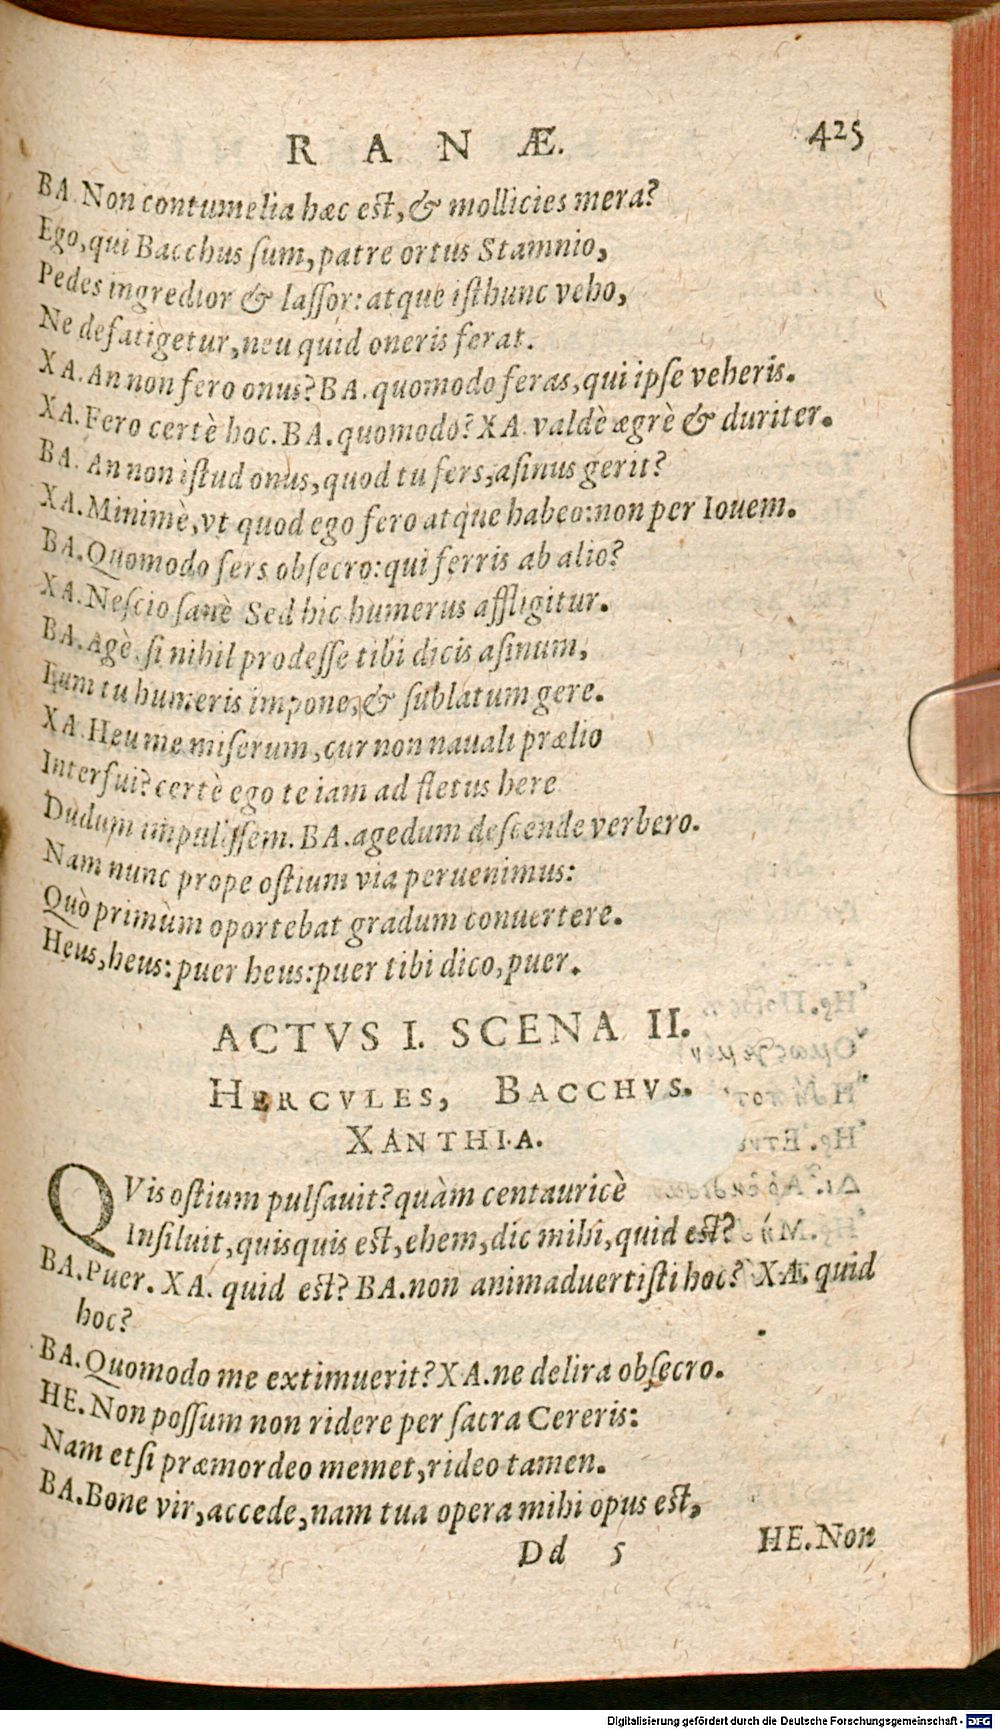 RANÆ. 425
BA. Non contumelia hæc est, & mollicies mera?
Ego, qui Bacchus ſum, patre ortus Stamnio,
Pedes ingredior & laſſor: atque iſthunc veho,
Ne defatigetur, neu quid oneris ferat.
XA. An non fero onus? BA. quomodo feras, qui ipſe veheris.
XA. Fero certè hoc. BA. quomodo? XA valdè ægrè & duriter.
BA. An non iſtud onus, quod tu fers, aſinus gerit?
XA. Minimè, vt quod ego fero atque habeo: non per Iouem.
BA. Quomodo fers obſecro: qui ferris ab alio?
XA. Neſcio ſanè Sed hic humerus affligitur.
BA. Agè, ſi nihil prodeſſe tibi dicis aſinum,
Eum tu humeris impone, & ſublatum gere.
XA. Heu me miſerum, cur non nauali prælio
Interfui? certè ego te iam ad fletus here
Dudum impuliſſem. BA. agedum deſcende verbero.
Nam nunc prope oſtium via peruenimus:
Quò primùm oportebat gradum conuertere.
Heus, heus: puer heus: puer tibi dico, puer.
ACTVS I. SCENA II.
HERCVLES, BACCHVS.
XANTHIA.
QVis oſtium pulſauit? quàm centauricè
Inſiluit, quisquis est, ehem, dic mihi, quid est?
BA. Puer. XA. quid est? BA. non animaduertiſti hoc? XA. quid
hoc?
BA. Quomodo me extimuerit? XA. ne delira obſecro.
HE. Non poſſum non ridere per ſacra Cereris:
Nam etſi præmordeo memet, rideo tamen.
BA. Bone vir, accede, nam tua opera mihi opus est,
Dd 5 HE. Non
Digitalisierung gefördert durch die Deutsche Forschungsgemeinschaft - DFG